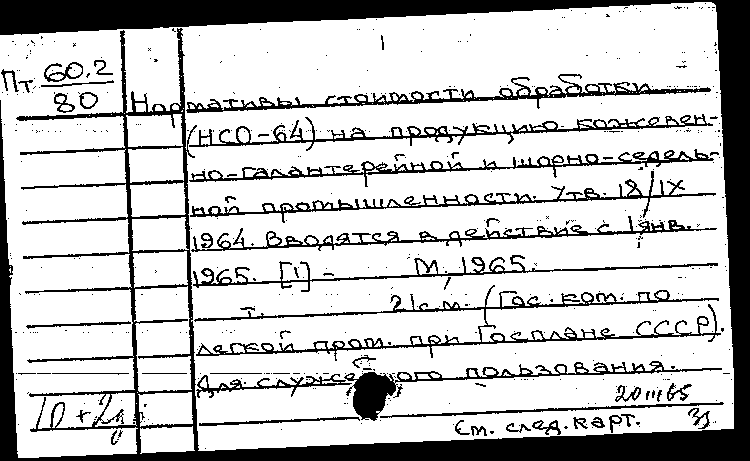 Пт 60.2
80
Нормативы стоимости обработки
(НСО-64) на продукцию кожевен-
но-галантерейной и шорно-седель-
ной промышленности. Утв. 18/IX
1964. Вводятся в действие с 1 янв.
1965. [1] - М, 1965.
т. 21 с.м. (Гос. ком. по
легкой пром. при Госплане СССР).
Для служебного пользования.
10 + 2
20 III 65
См. след. карт.